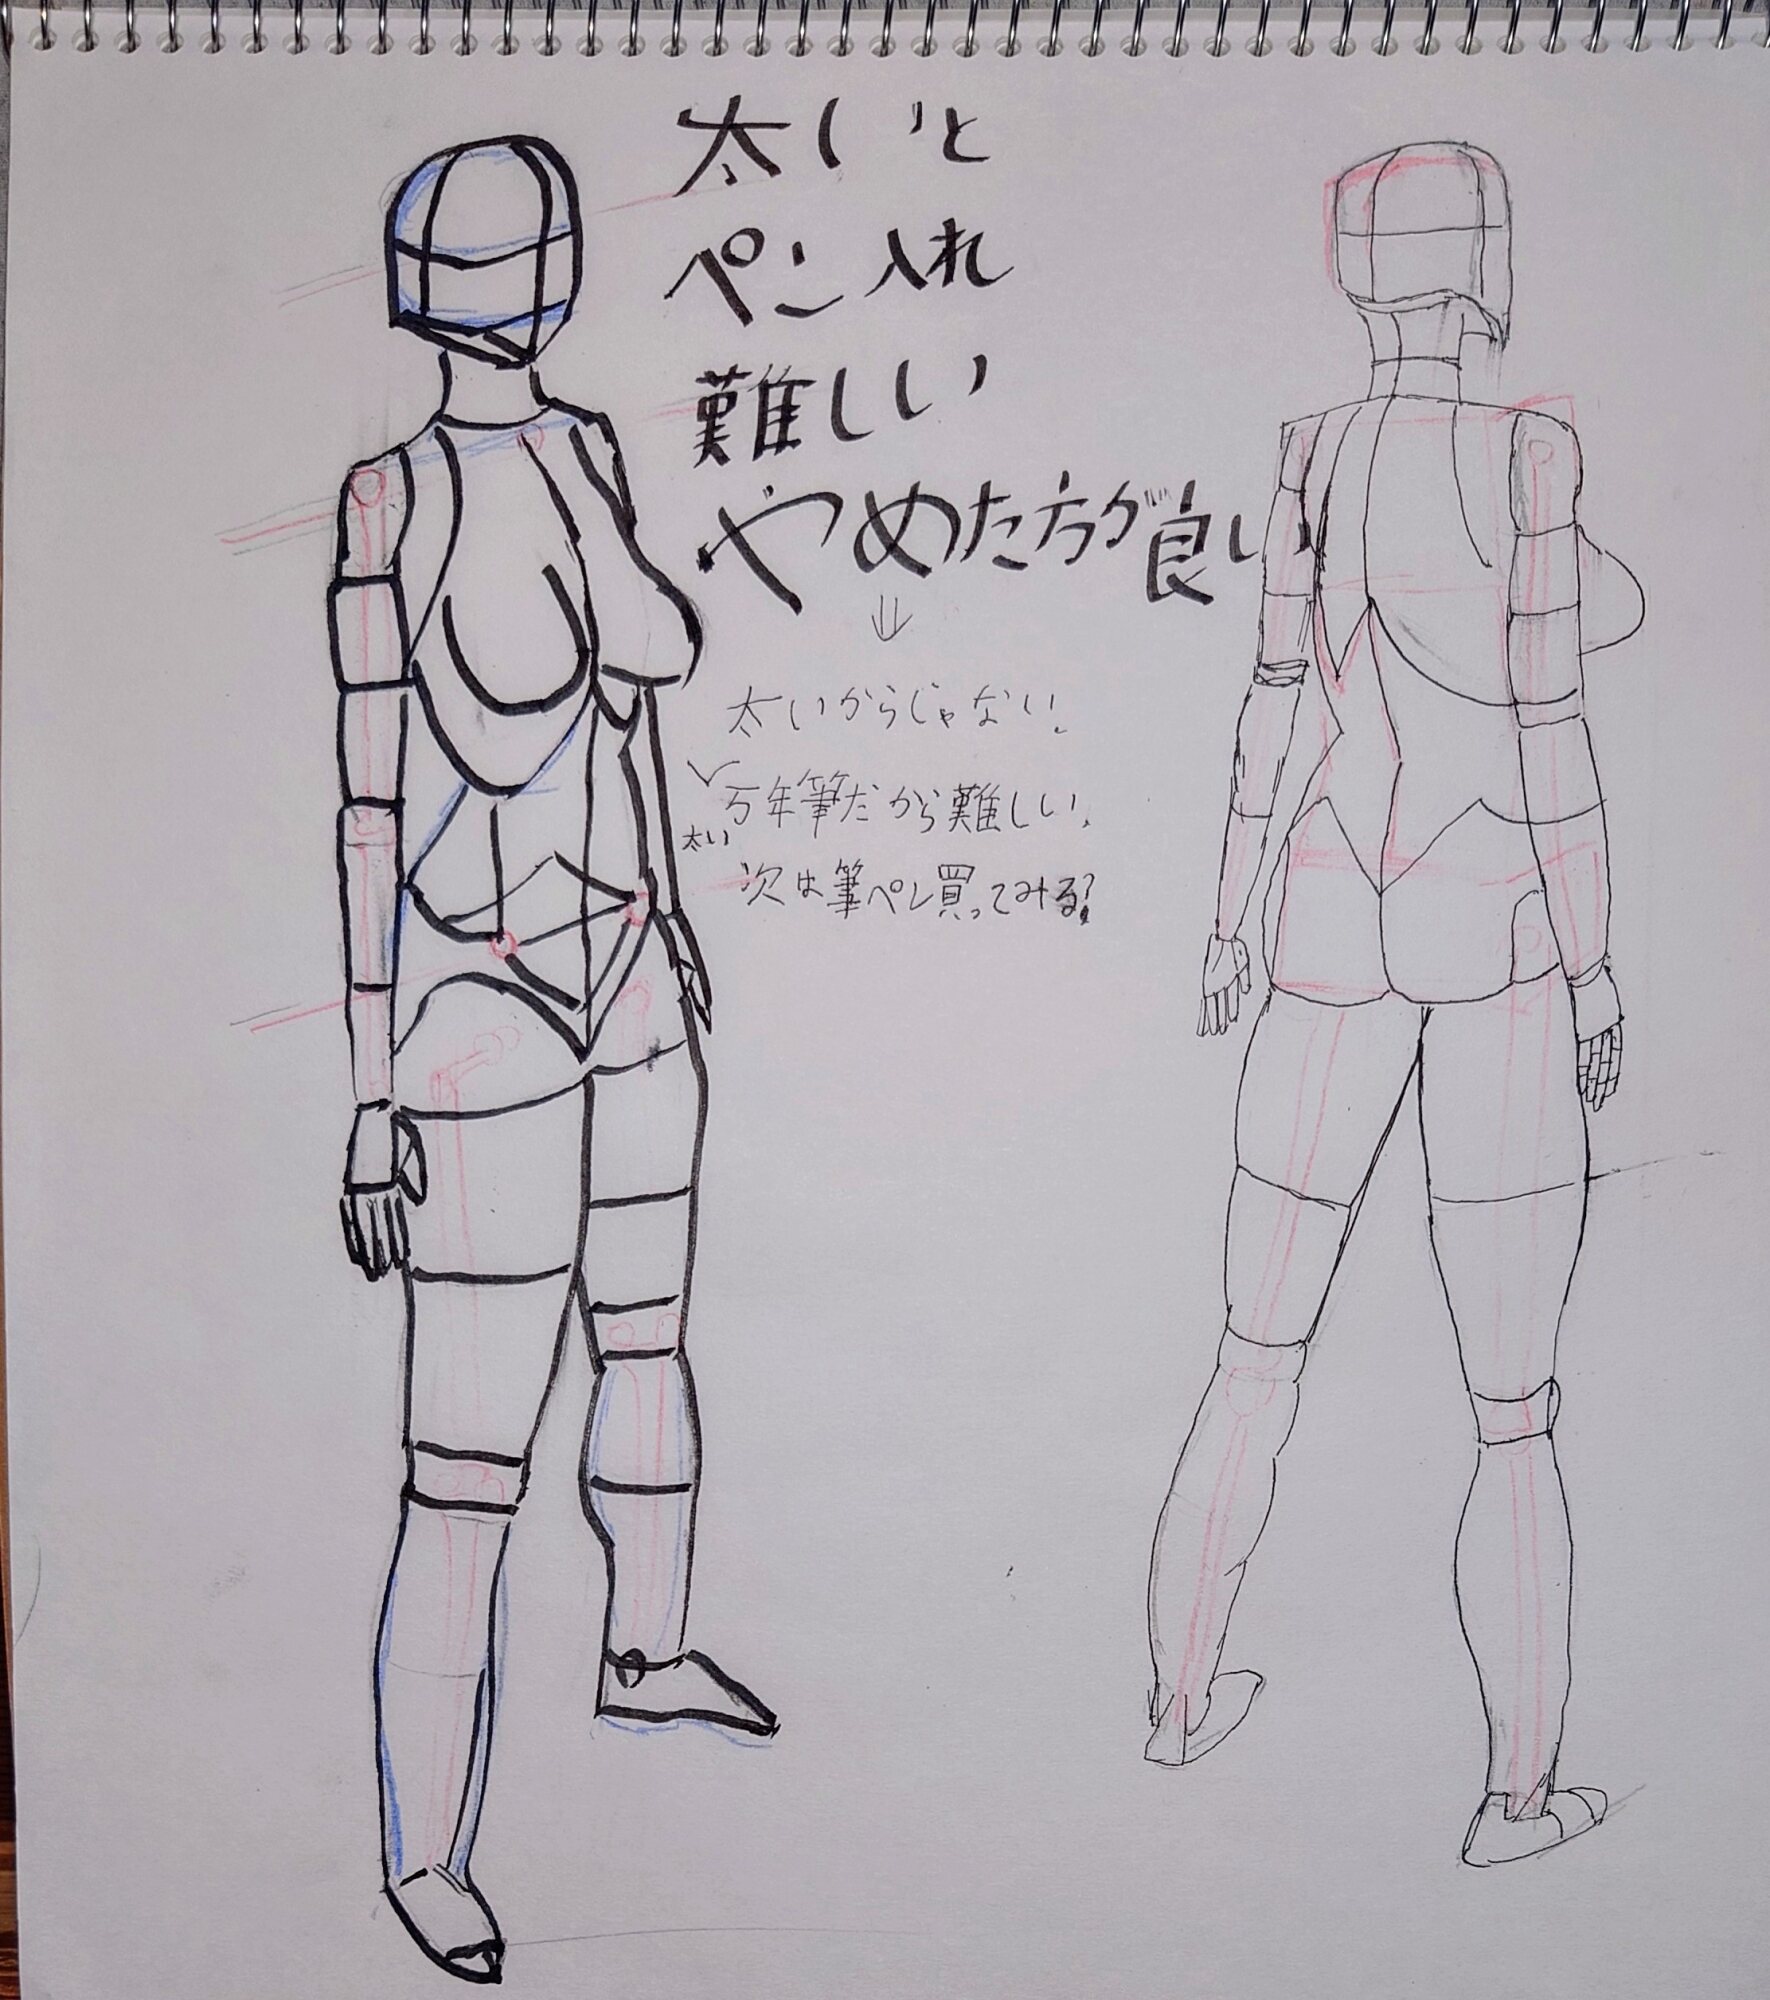 太いと
ペン入れ
難しい
やめた方が良い
⇓
太いからじゃない。
太い万年筆だから難しい。
次は筆ペン買ってみる?